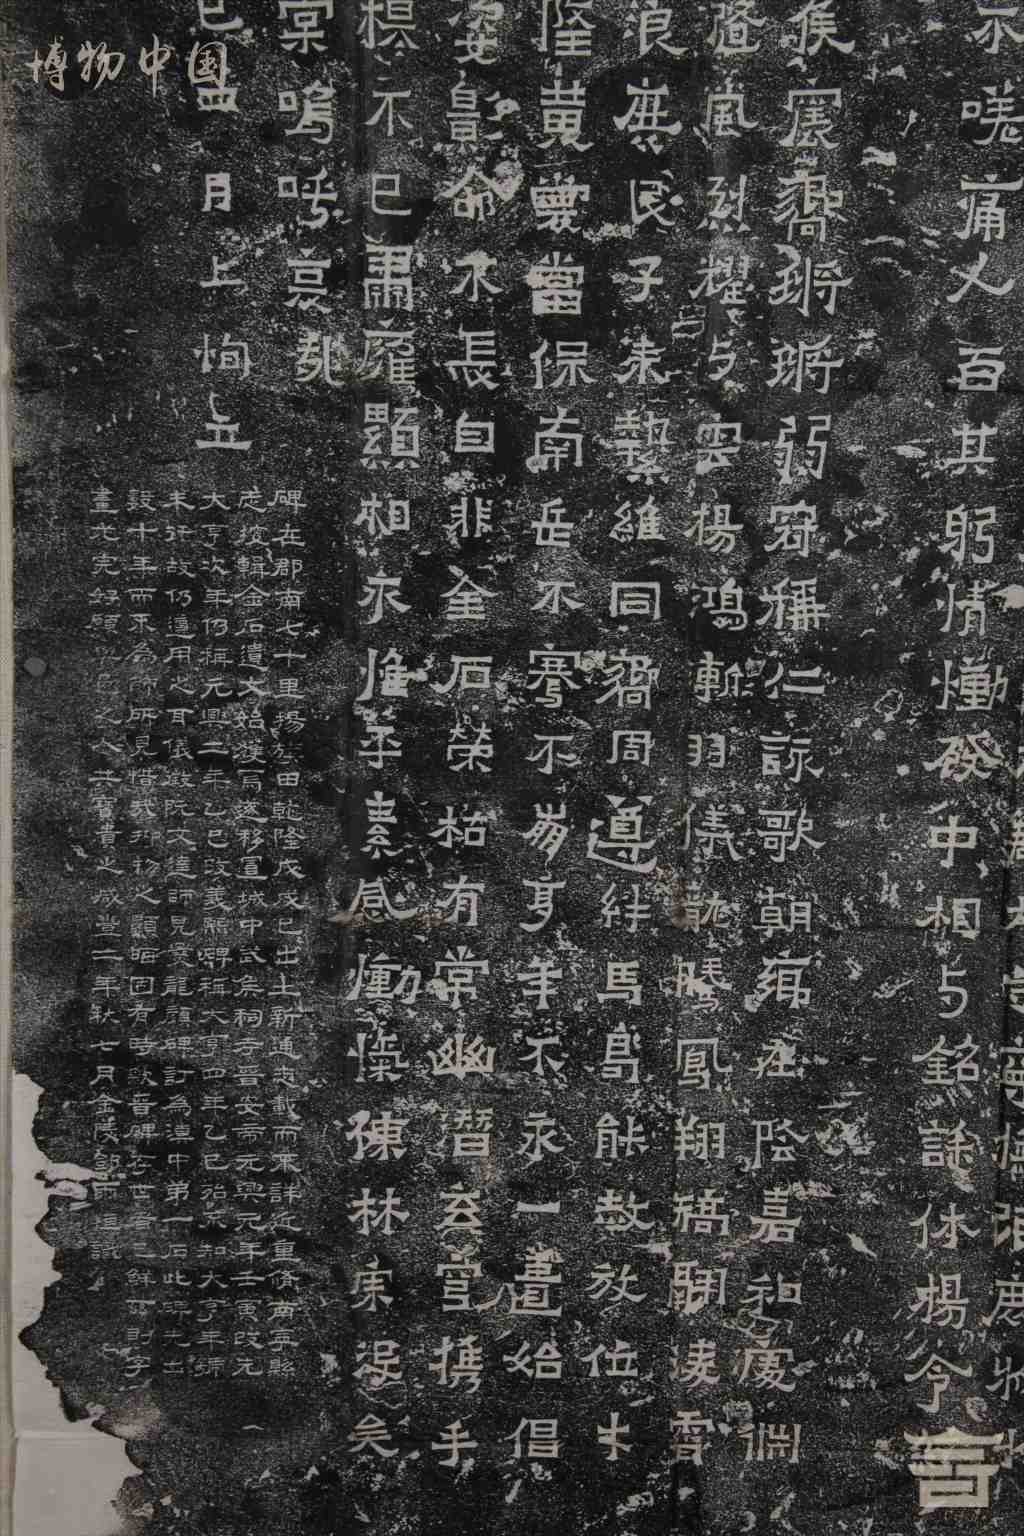 不嗟痛人百其躬情慟發中相与銘誄休揚令
侯震響鏘鏘弱冠稱仁詠歌朝鄉在陰嘉和處淵
隨風烈耀与雲揚鴻漸羽儀龍騰鳳翔矯翮凌霄
浪庶民子來縶維同響周遵絆馬曷能赦放位才
隆黃裳當保南岳不騫不崩享年不永一匱始倡
姿影命不長自非金石榮枯有常幽潛玄穹攜手
穆不已肅雍顯相永惟平素感慟愾慷林宗沒矣
棠嗚呼哀哉
巳四月上恂立
碑在郡南七十里楊旗田乾隆戊戌已出土新通志載而不詳近重修南寧縣
志搜輯金石遺文始獲焉遂移置城中武侯祠考晉安帝元興元年壬寅改元
大亨次年仍稱元興二年乙巳改義熙碑稱大亨四年乙巳殆不知大亨年號
未行故仍遵用之耳儀徵阮文達師見爨龍顏碑訂為滇中第一石此碑先出
數十年而不為師所見惜哉抑物之顯晦固有時歟晉碑存世者已鮮茲則字
畫尤完好願與邑之人共寶貴之咸豐二年秋七月金陵鄧爾恆識
博物中国